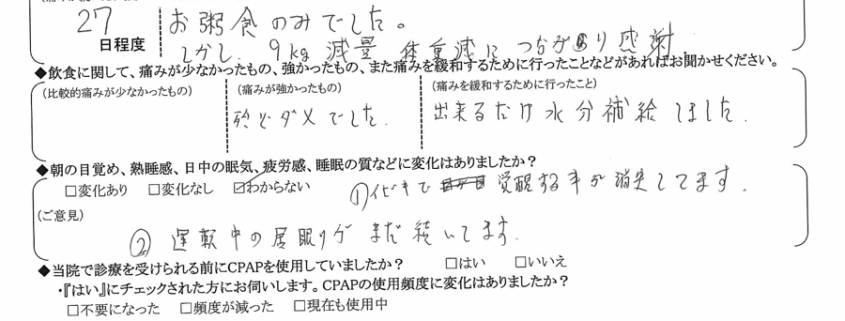 27
日程度
お粥食のみでした。
しかし、9kg 減量 体重減につながり感謝。
◆飲食に関して、痛みが少なかったもの、強かったもの、また痛みを緩和するために行ったことなどがあればお聞かせください。
(比較的痛みが少なかったもの) (痛みが強かったもの) (痛みを緩和するために行ったこと)
殆どダメでした. 出来るだけ水分補給しました.
◆朝の目覚め、熟睡感、日中の眠気、疲労感、睡眠の質などに変化はありましたか?
□変化あり □変化なし ☑わからない ①イビキで 覚醒する事が消失してます.
(ご意見)
② 運転中の居眠りがまだ続いてます.
◆当院で診療を受けられる前にCPAPを使用していましたか? □はい □いいえ
・『はい』にチェックされた方にお伺いします。CPAPの使用頻度に変化はありましたか?
□不要になった □頻度が減った □現在も使用中